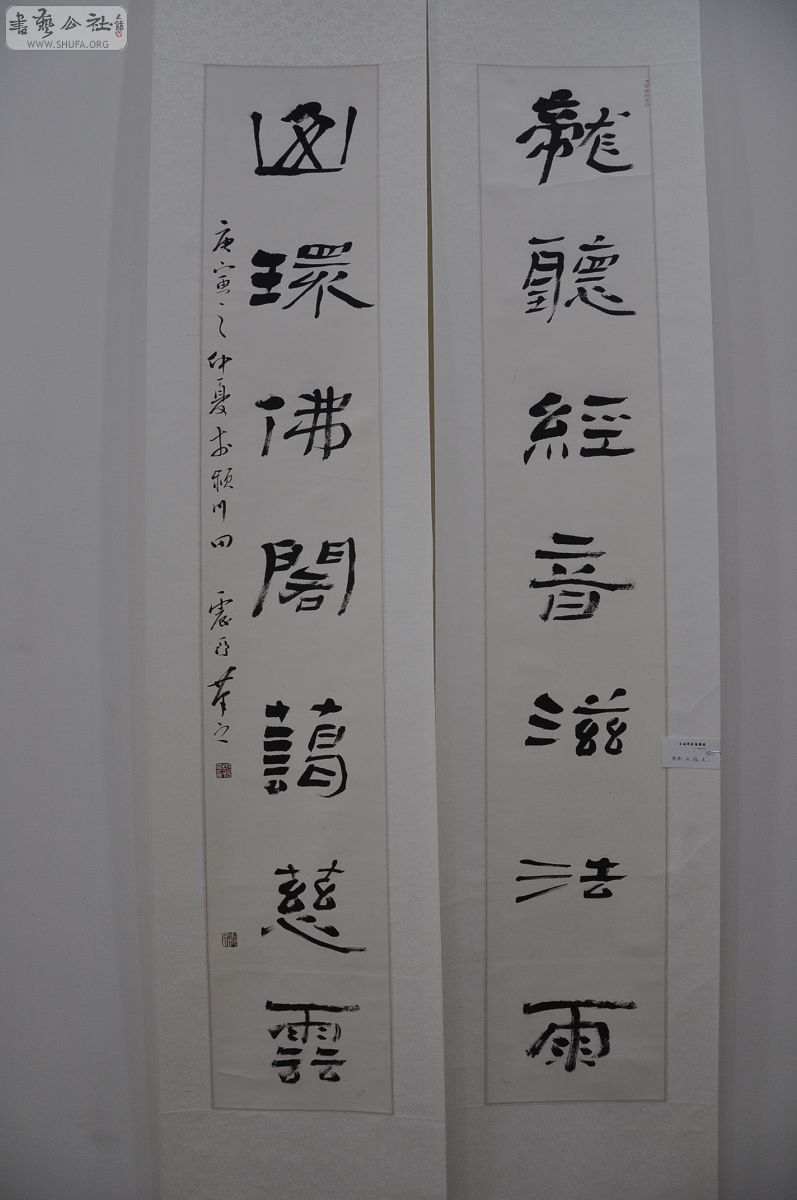 書藝公社
WWW.SHUFA.ORG
龍聽經音滋法雨
環佛閣藹慈雲
庚寅之仲夏於潁川田震